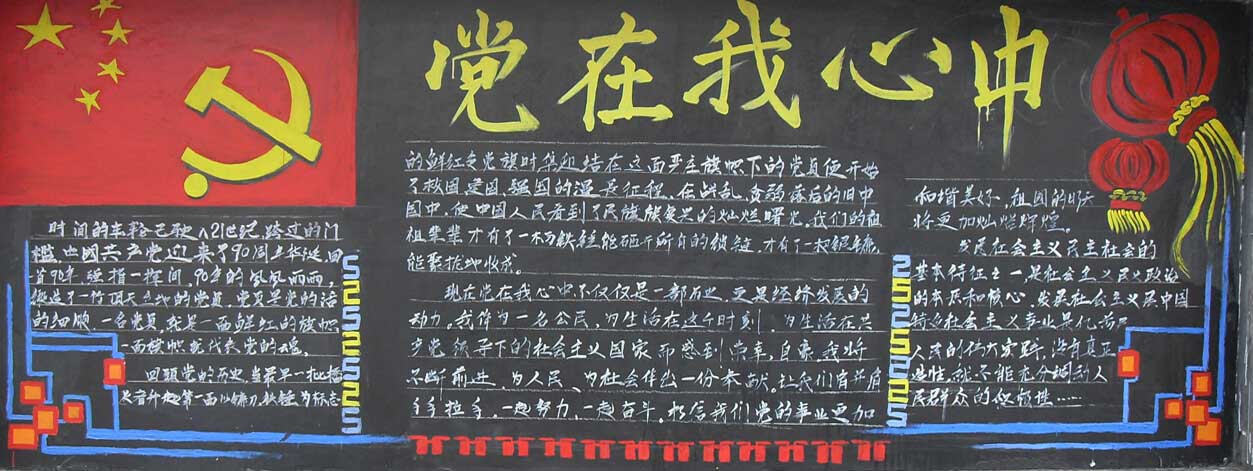 党在我心中
时间的车轮已驶入21世纪,跨过的门
槛中国共产党迎来了90周年华诞,回
首90年弹指一挥间,90年的风风雨雨,
造就了一批顶天立地的党员,党员是党的活
的细胞,一名党员,就是一面鲜红的旗帜
一面旗帜就代表党的魂。
回顾党的历史,当最早一批擂
起第一面以镰刀、铁锤为标志
的鲜红色党旗时集起结在这面严主旗帜下的党员便开始
了救国建国强国的漫长征程。在战乱、贫弱落后的旧中
国中,使中国人民看到了民族能复兴的灿烂曙光。我们的祖
祖辈辈才有了一柄铁锤能砸开所有的锁链,才有了一把镰刀,
能聚拢地收成。
现在党在我心中不仅仅是一部历史,更是经济发展的
动力。我作为一名公民,为生活在这个时刻,为生活在共
产党领导下的社会主义国家而感到荣幸,自豪,我将
不断前进,为人民、为社会作出一份奉献。让我们肩并肩
手拉手,一起努力,一起奋斗,相信我们党的事业更加
和谐美好,祖国的明天
将更加灿烂辉煌。
发展社会主义民主社会的
基本特征之一,是社会主义民主政治
的本质和核心。发展社会主义是中国
特色社会主义事业是亿万
人民的伟大实践,没有真正
造性,就不能充分调动人
民群众的积极性……